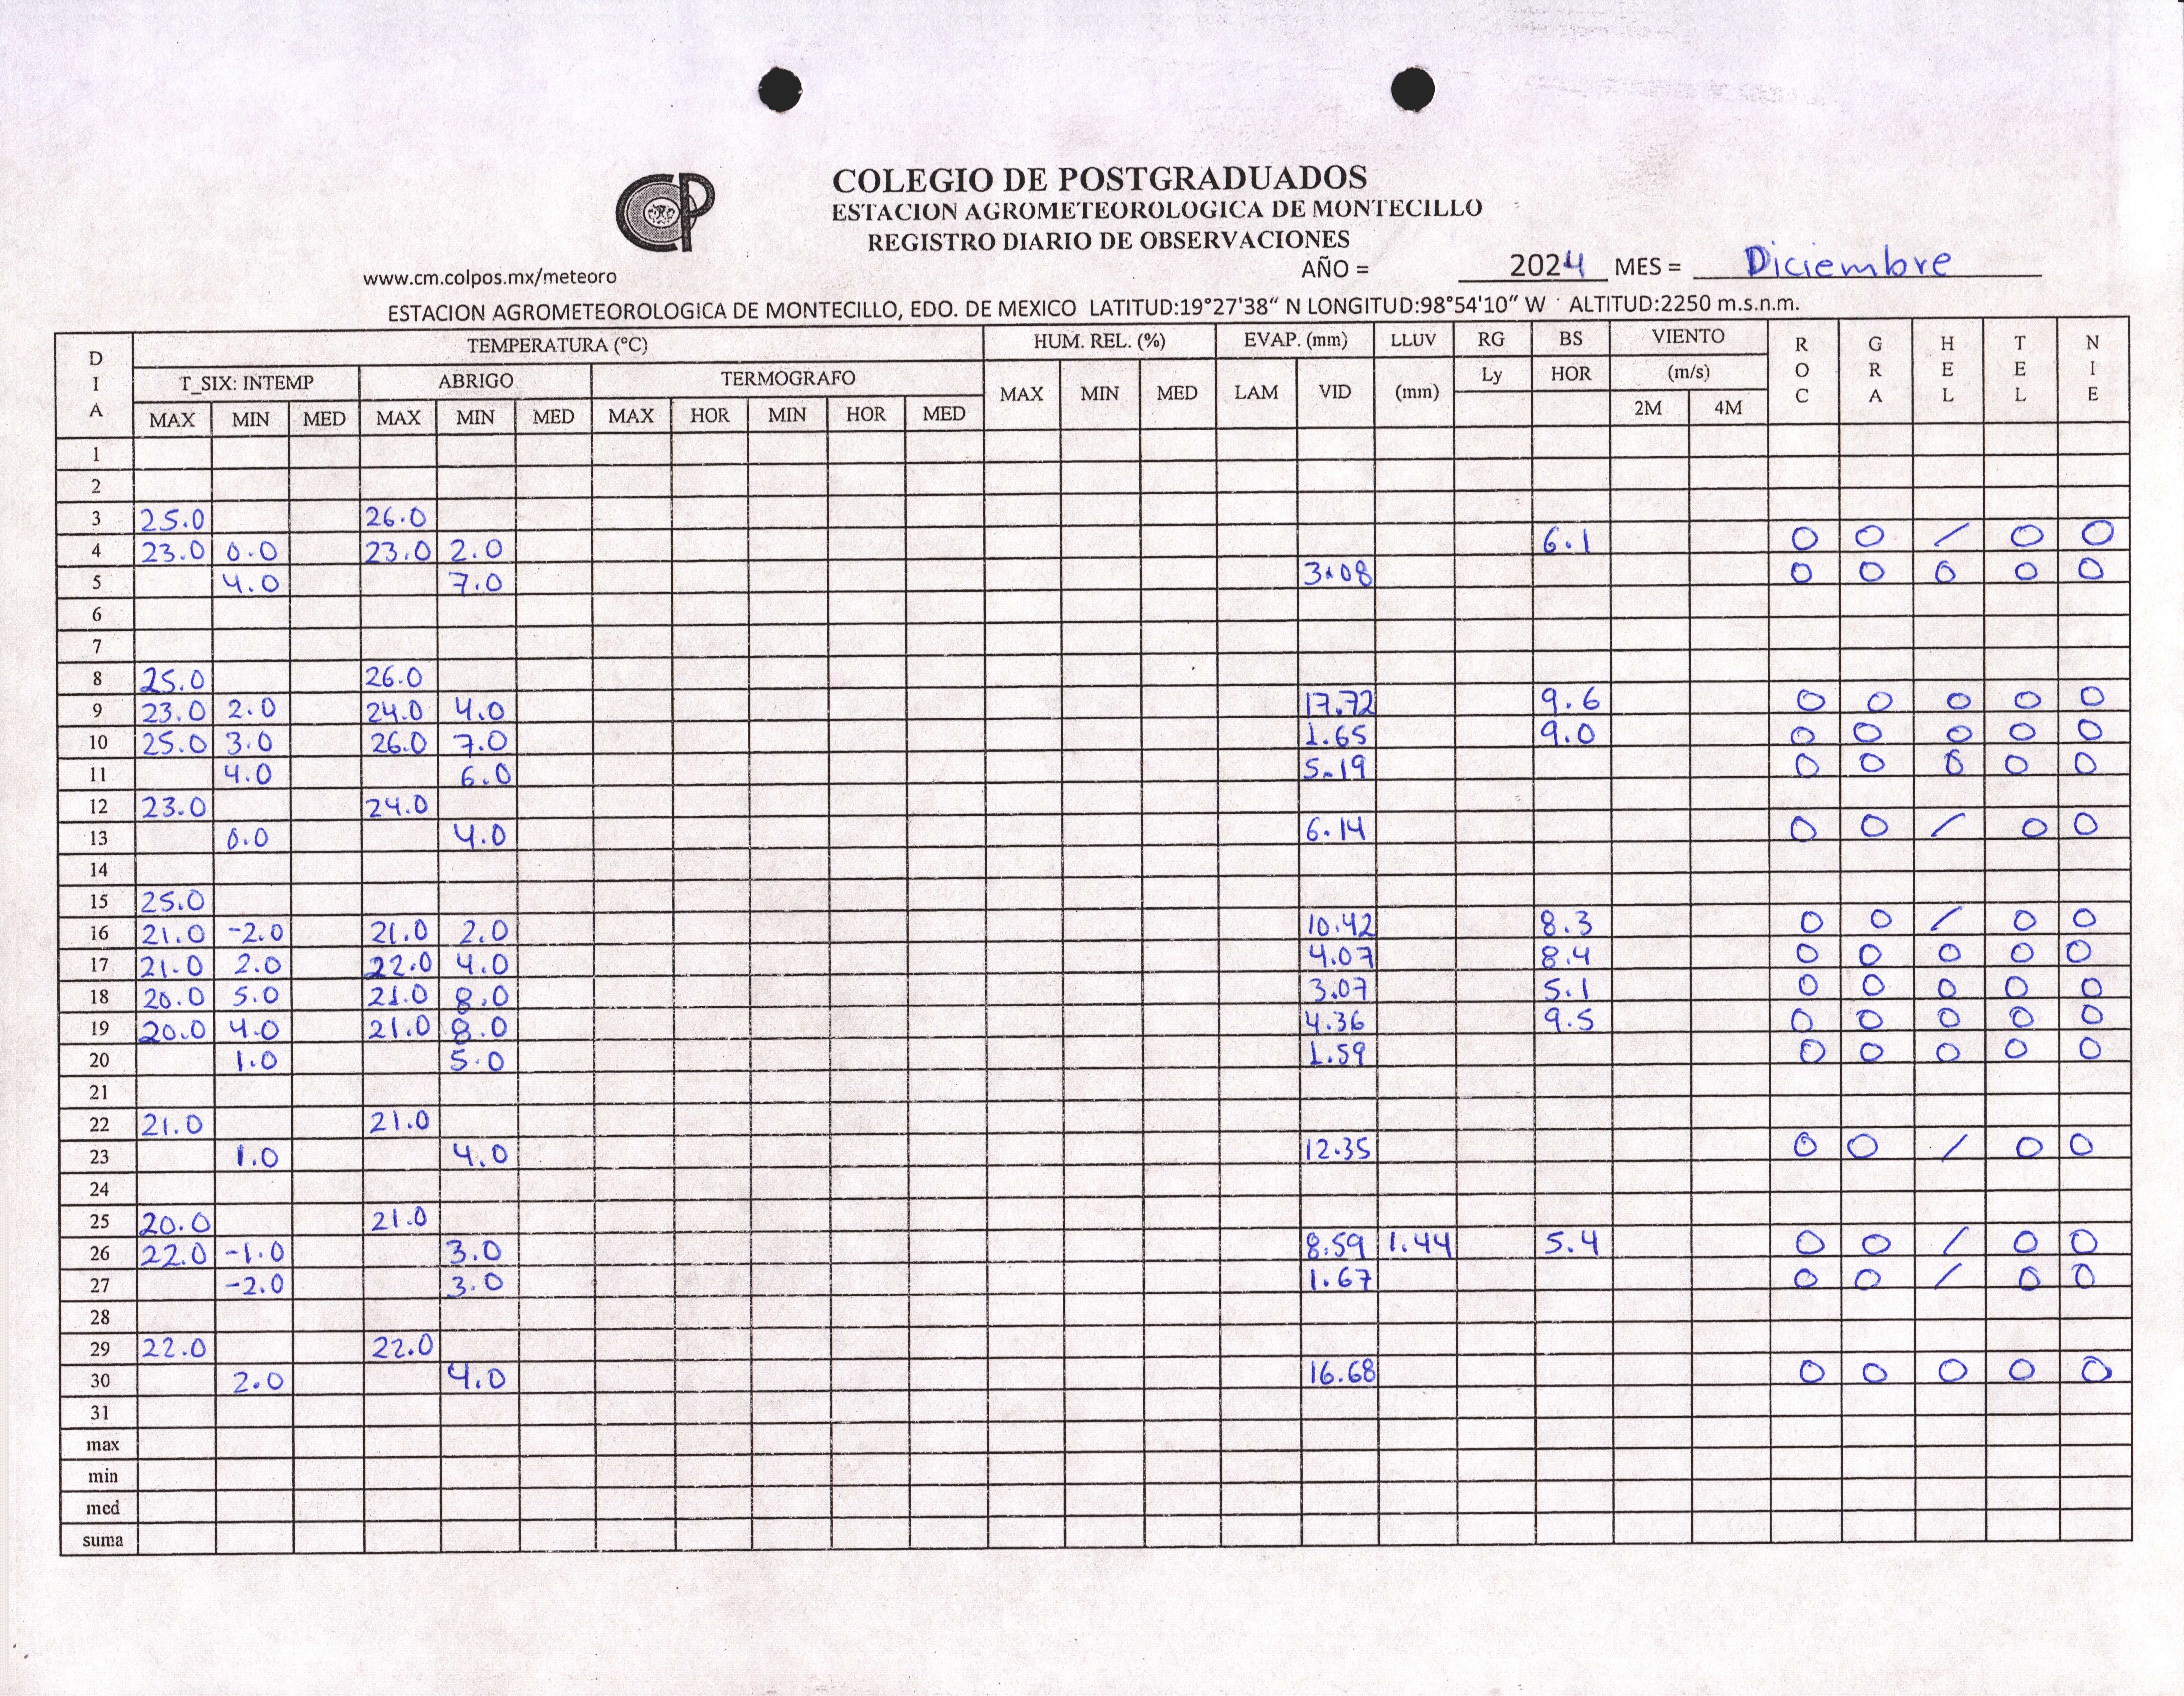 COLEGIO DE POSTGRADUADOS
ESTACION AGROMETEOROLOGICA DE MONTECILLO
REGISTRO DIARIO DE OBSERVACIONES
www.cm.colpos.mx/meteoro AÑO = 2024 MES = Diciembre
ESTACION AGROMETEOROLOGICA DE MONTECILLO, EDO. DE MEXICO LATITUD:19°27'38“ N LONGITUD:98°54'10“ W ALTITUD:2250 m.s.n.m.
DIA TEMPERATURA (°C) HUM. REL. (%) EVAP. (mm) LLUV RG BS VIENTO ROC GRA HEL TEL NIE
T_SIX: INTEMP ABRIGO TERMOGRAFO MAX MIN MED LAM VID (mm) Ly HOR (m/s)
MAX MIN MED MAX MIN MED MAX HOR MIN HOR MED 2M 4M
1
2
3 25.0 26.0
4 23.0 0.0 23.0 2.0 6.1 0 0 / 0 0
5 4.0 7.0 3.08 0 0 0 0 0
6
7
8 25.0 26.0
9 23.0 2.0 24.0 4.0 17.72 9.6 0 0 0 0 0
10 25.0 3.0 26.0 7.0 1.65 9.0 0 0 0 0 0
11 4.0 6.0 5.19 0 0 0 0 0
12 23.0 24.0
13 0.0 4.0 6.14 0 0 / 0 0
14
15 25.0
16 21.0 -2.0 21.0 2.0 10.42 8.3 0 0 / 0 0
17 21.0 2.0 22.0 4.0 4.07 8.4 0 0 0 0 0
18 20.0 5.0 21.0 8.0 3.07 5.1 0 0 0 0 0
19 20.0 4.0 21.0 8.0 4.36 9.5 0 0 0 0 0
20 1.0 5.0 1.59 0 0 0 0 0
21
22 21.0 21.0
23 1.0 4.0 12.35 0 0 / 0 0
24
25 20.0 21.0
26 22.0 -1.0 3.0 8.59 1.44 5.4 0 0 / 0 0
27 -2.0 3.0 1.67 0 0 / 0 0
28
29 22.0 22.0
30 2.0 4.0 16.68 0 0 0 0 0
31
max
min
med
suma